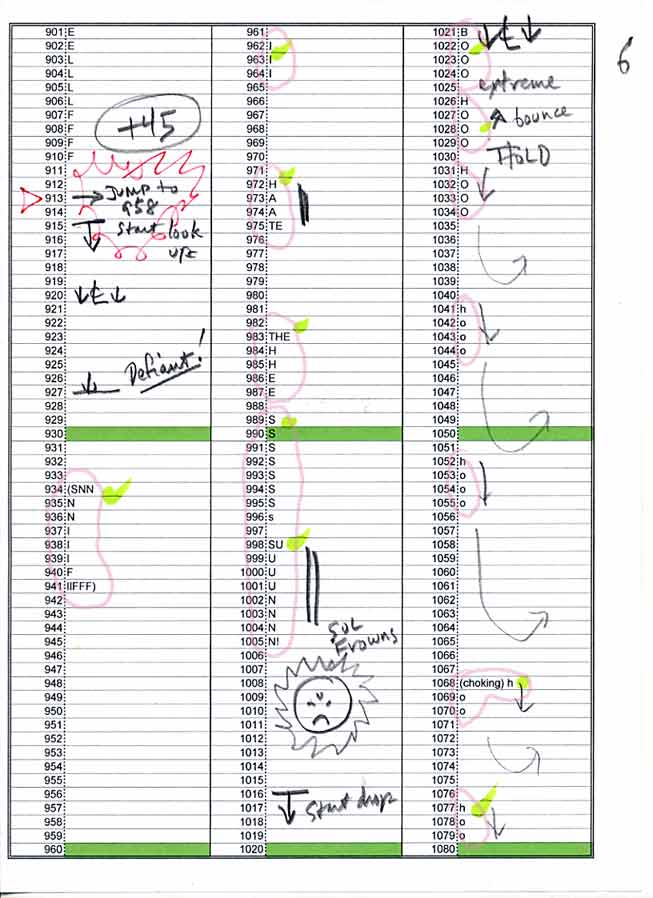 6
901 E
902 E
903 L
904 L
905 L
906 L
907 F
908 F
909 F
+45
910 F
911
912
913 JUMP to
914 958
915 Start look
916 up
917
918
919
920
921
922
923
924
925 Defiant!
926
927
928
929
930
931
932
933
934 (SNN
935 N
936 N
937 I
938 I
939 I
940 F
941 IIFFF)
942
943
944
945
946
947
948
949
950
951
952
953
954
955
956
957
958
959
960
961
962 I
963 I
964 I
965
966
967
968
969
970
971
972 H
973 A
974 A
975 TE
976
977
978
979
980
981
982
983 THE
984 H
985 H
986 E
987 E
988
989 S
990 S
991 S
992 S
993 S
994 S
995 S
996 s
997
998 SU
999 U
1000 U
1001 U
1002 N
1003 N
1004 N
1005 N!
SOL
Frowns
1006
1007
1008
1009
1010
1011
1012
1013
1014
1015
1016
1017 Start drop
1018
1019
1020
1021 B
1022 O
1023 O
1024 O
1025 extreme
1026 H
1027 O bounce
1028 O
1029 O
1030 HOLD
1031 H
1032 O
1033 O
1034 O
1035
1036
1037
1038
1039
1040
1041 h
1042 o
1043 o
1044 o
1045
1046
1047
1048
1049
1050
1051
1052 h
1053 o
1054 o
1055 o
1056
1057
1058
1059
1060
1061
1062
1063
1064
1065
1066
1067
1068 (choking) h
1069 o
1070 o
1071
1072
1073
1074
1075
1076
1077 h
1078 o
1079 o
1080